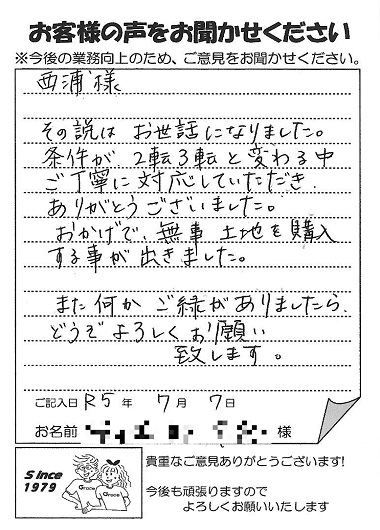 お客様の声をお聞かせください
※今後の業務向上のため、ご意見をお聞かせください。
西浦様
その説は お世話になりました。
条件が 2転3転と変わる中
ご丁寧に対応していただき
ありがとうございました。
おかげで、無事 土地を購入
する事が出きました。
また何か ご縁がありましたら、
どうぞよろしくお願い
致します。
ご記入日 R5 年 7 月 7 日
お名前 様
Since
1979
Grace
Grace
貴重なご意見ありがとうございます!
今後も頑張りますので
よろしくお願いいたします